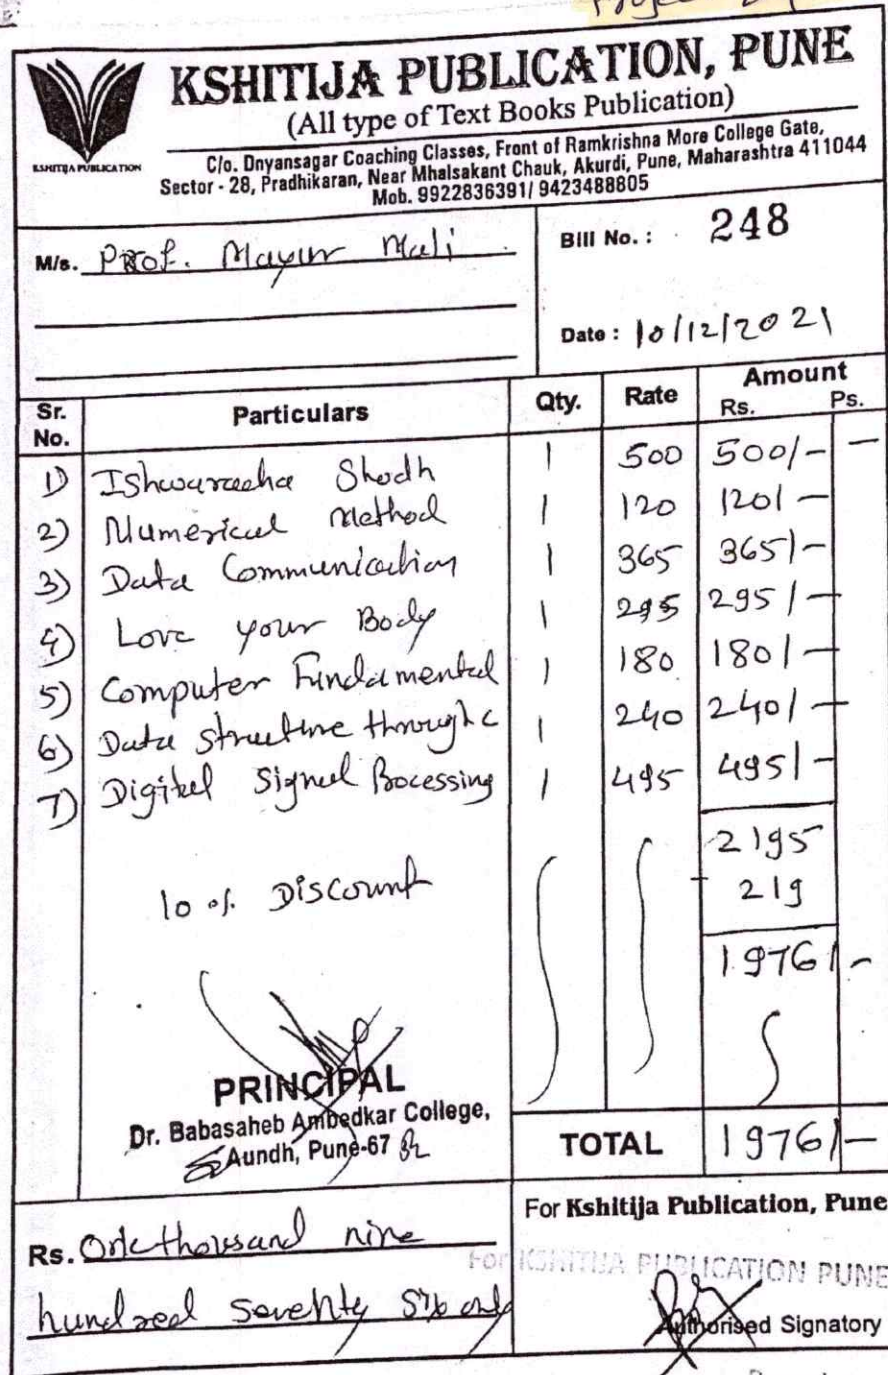 KSHITIJA PUBLICATION, PUNE
(All type of Text Books Publication)
KSHITIJA PUBLICATION
C/o. Dnyansagar Coaching Classes, Front of Ramkrishna More College Gate,
Sector - 28, Pradhikaran, Near Mhalsakant Chauk, Akurdi, Pune, Maharashtra 411044
Mob. 9922836391/ 9423488805
M/s. Prof. Mayur Mali
Bill No. : 248
Date : 10/12/2021
Sr. No. Particulars Qty. Rate Amount Rs. Ps.
1) Shodh 1 500 500/- -
2) Numerical Method 1 120 120/-
3) Data Communication 1 365 365/-
4) Love your Body 1 295 295/-
5) Computer Fundamental 1 180 180/-
6) Data structure through c 1 240 240/-
7) Digital Signal Processing 1 495 495/-
2195
10 % Discount 219
1976/-
PRINCIPAL
Dr. Babasaheb Ambedkar College,
Aundh, Pune-67
TOTAL 1976/-
For Kshitija Publication, Pune
Rs. One thousand nine
hundred seventy six only
For KSHITIJA PUBLICATION PUNE
Authorised Signatory